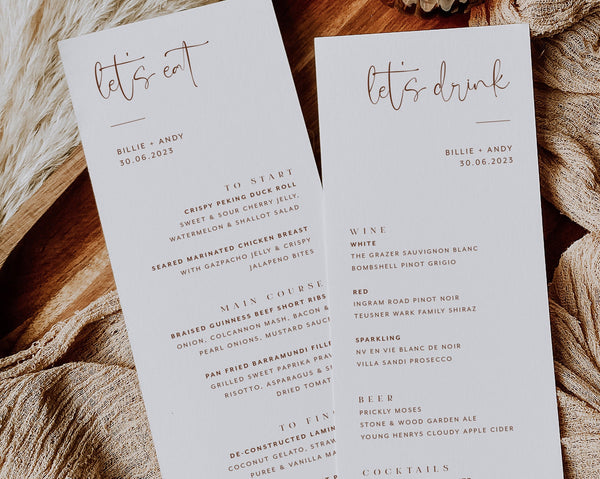 let's eat
BILLIE + ANDY
30.06.2023
TO START
CRISPY PEKING DUCK ROLL
SWEET & SOUR CHERRY JELLY,
WATERMELON & SHALLOT SALAD
SEARED MARINATED CHICKEN BREAST
WITH GAZPACHO JELLY & CRISPY
JALAPENO BITES
MAIN COURSE
BRAISED GUINNESS BEEF SHORT RIBS
ONION, COLCANNON MASH, BACON &
PEARL ONIONS, MUSTARD SAUC
PAN FRIED BARRAMUNDI FILLE
GRILLED SWEET PAPRIKA PRA
RISOTTO, ASPARAGUS & S
DRIED TOMAT
TO FIN
DE-CONSTRUCTED LAMIN
COCONUT GELATO, STRAW
PUREE & VANILLA MA
let's drink
BILLIE + ANDY
30.06.2023
WINE
WHITE
THE GRAZER SAUVIGNON BLANC
BOMBSHELL PINOT GRIGIO
RED
INGRAM ROAD PINOT NOIR
TEUSNER WARK FAMILY SHIRAZ
SPARKLING
NV EN VIÉ BLANC DE NOIR
VILLA SANDI PROSECCO
BEER
PRICKLY MOSES
STONE & WOOD GARDEN ALE
YOUNG HENRYS CLOUDY APPLE CIDER
COCKTAILS